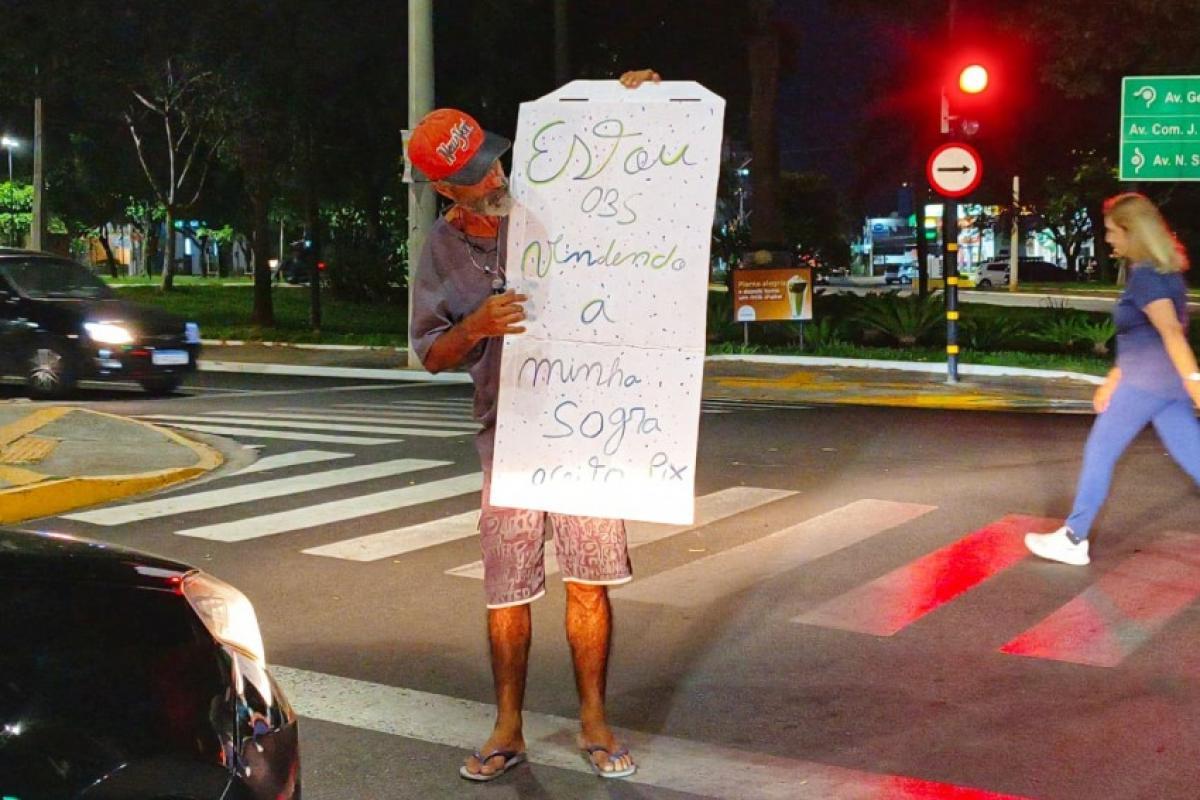 EStou
OBS
Vindendo
a
minha
Sogra
aceito Pix
Av. Ge
Av. Com. J.
Av. N. S